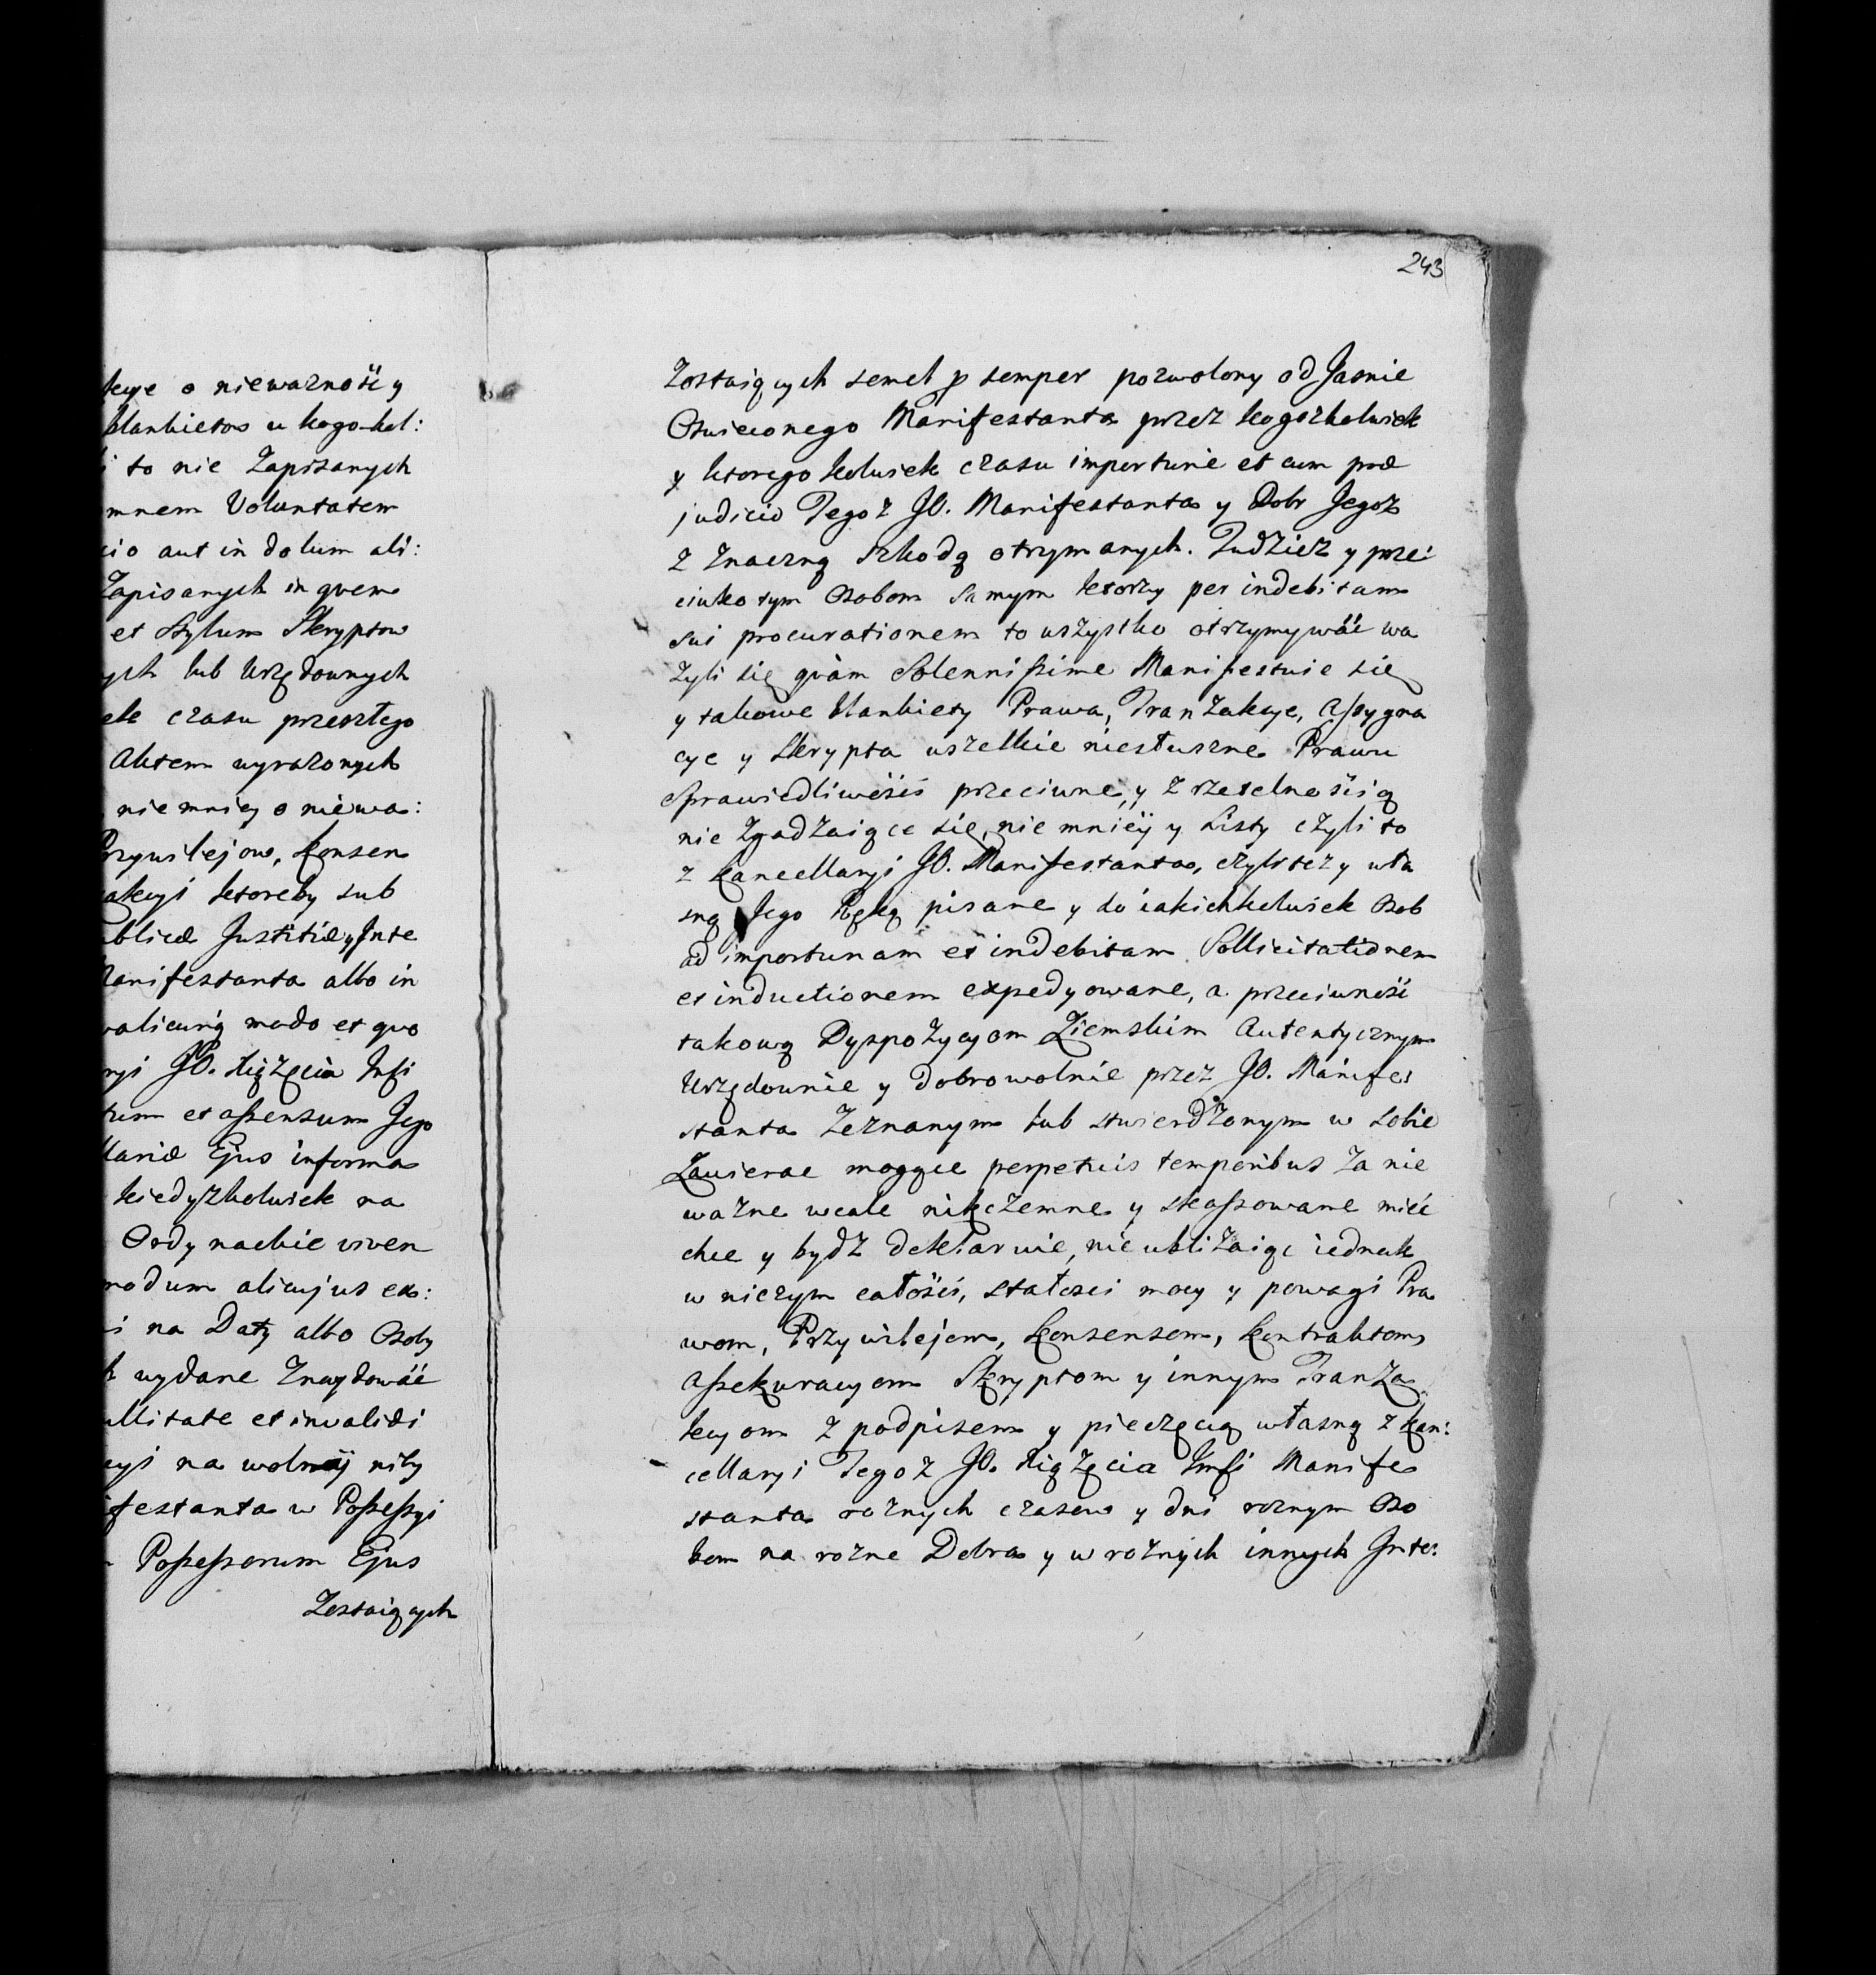 kcye o nieważność y
blankietow u kogo-kol:
to nie Zapisanych
mnem Voluntatem
cio aut in dolum ali:
Zapisanych in quem
et Stylum Skryptow
ych lub Urzędownych
ek czasu przeszłego
Aktem wyrażonych
niemniey o niewa:
Przywilejow, Konsen
akcyi ktoreby sub
ublicæ Justitiæ y Inte
Manifestanta albo in
alicunq modo et quo
ryi JO. Xiążęcia Jmsi
tum et assensum Jego
llariæ Ejus informa
kiedyżkolwiek na
Ordynackie
modum alicujus ex:
i na Daty albo Osoby
wydane Znaydować
ullitate et invalidi
cyi na wolney niby
ifestanta w Possessyi
Possessorum Ejus
Zostaiących
243
Zostaiących semel p semper pozwolony od Jasnie
Oswieconego Manifestanta przez kogożkolwiek
y ktorego kolwiek czasu importunie et cum præ
judicio Tegoż JO. Manifestanta y Dobr Jegoż
z Znaczną szkodą otrzymanych. Tudzież y prze:
ciwko tym Osobom samym ktorzy per indebitam
sui procurationem to wszystko otrzymywać wa
żyli się quàm Solennissime Manifestuie się
y takowe blankiety Prawa, Tranzakcye, Assygna
cye y Skrypta wszelkie niesłuszne Prawu
Sprawiedliwości przeciwne, y z rzetelnością
nie Zgadzaiące się, niemniey y Listy czyli to
z Kancellaryi JO. Manifestanta, czyli też y wła
sną Jego Ręką pisane y do iakichkolwiek Osob
ad importunam et indebitam Sollicitationem
et inductionem expedyowane, a przeciwność
takową Dyspozycyom Ziemskim Autentycznym
Urzędownie y dobrowolnie przez JO. Manifes
stanta Zeznanym lub stwierdzonym w sobie
Zawierac mogące perpetuis temporibus Za nie
ważne wcale nikczemne y skassowane mieć
chce y bydź deklaruie, nieubliżaiąc iednak
w niczym całości, stałości mocy y powagi Pra
wom, Przywilejom, Konsensom, Kontraktom
Assekuracyom Skryptom y innym Tranza
kcyom z podpisem y pieczęcią własną z Kan:
cellaryi Tegoż JO. Xiążęcia Jmsi Manife
stanta rożnych czasow y dni rożnym Oso
bom na rożne Dobra y w rożnych innych Inte: